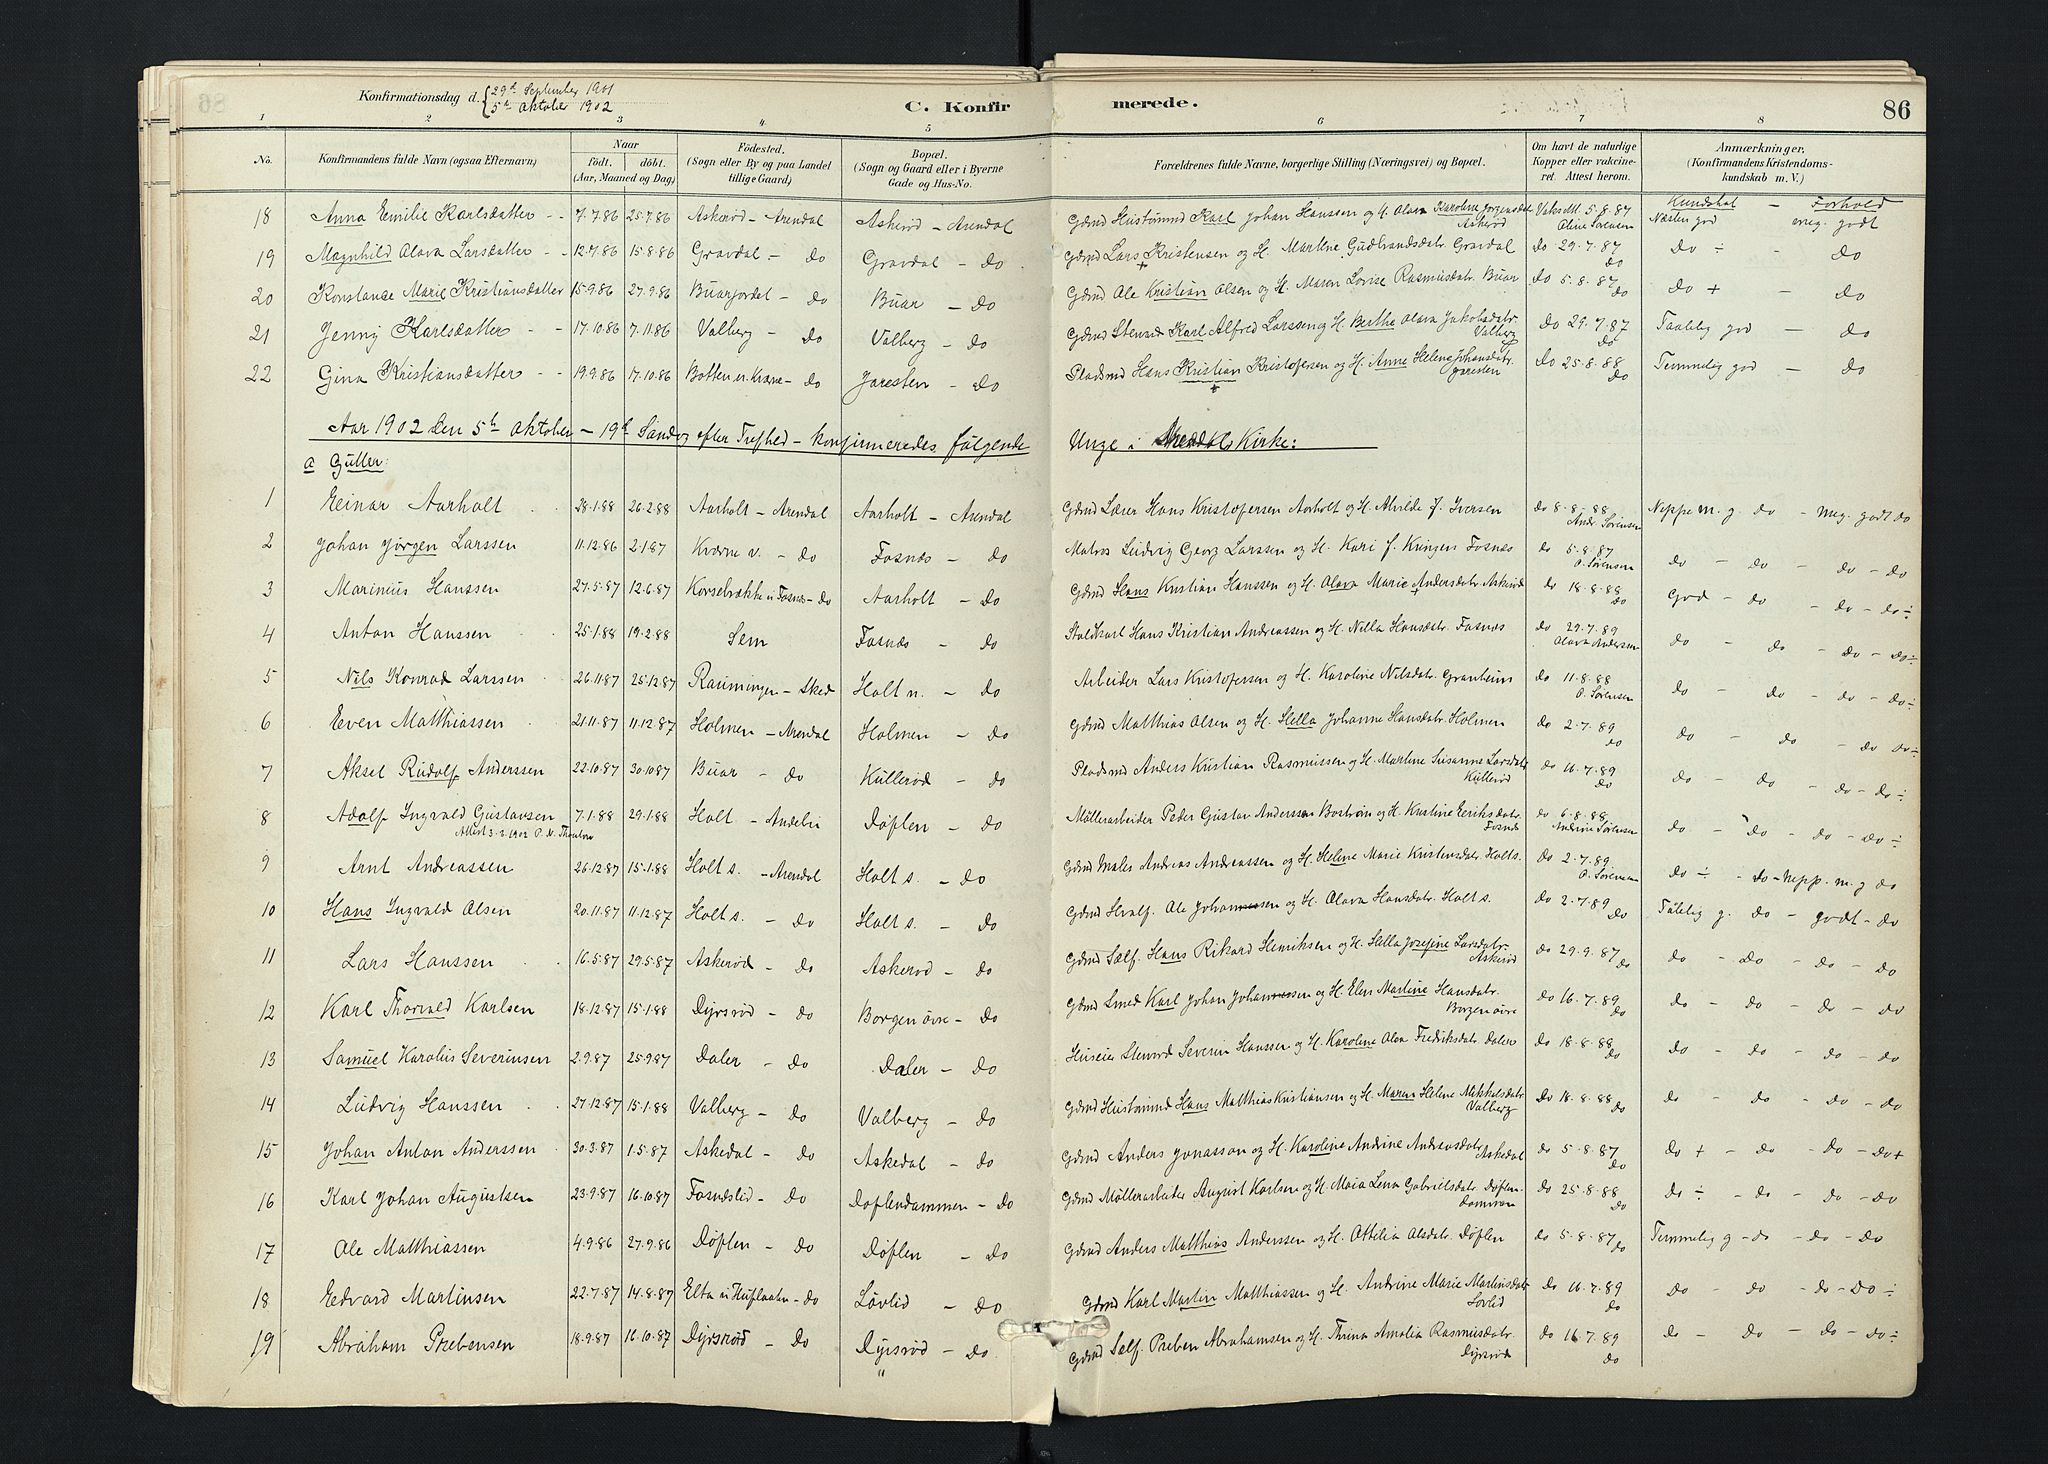 Konfirmationsdag d. { 29de September 1901
5te Oktober 1902
C. Konfir merede. 86
1 2 3 4 5 6 7 8
No. Konfirmandens fulde Navn (ogsaa Efternavn) Naar født. døbt. (Aar, Maaned og Dag) Fødested. (Sogn eller By og paa Landet tillige Gaard) Bopæl. (Sogn og Gaard eller i Byerne Gade og Hus-No. Forældrenes fulde Navne, borgerlige Stilling (Næringsvei) og Bopæl. Om havt de naturlige Kopper eller vakcineret. Attest herom. Anmærkninger, (Konfirmandens Kristendomskundskab m. V.)
Kundskab – Forhold
18 Anna Emilie Karlsdatter 7.7.86 25.7.86 Askerød – Arendal Askerød – Arendal Gdmd Hustømmd Karl Johan Hanssen og H. Olava Karoline Jørgensdatr Askerød Vaks. Att. 5.8.87 Oline Sørensen Næsten god meg. godt
19 Magnhild Olava Larsdatter 12.7.86 15.8.86 Gravdal – do Gravdal – do Gdmd Lars Kristensen og H. Martine Gudbrandsdatr. Gravdal do 29.7.87 do do ÷ – do
20 Konstanse Marie Kristiansdatter 15.9.86 27.9.86 Buarjordet – do Buar – do Gdmd Ole Kristian Olsen og H. Maren Lovise Rasmusdatr. Buar do 5.8.87 do do + – do
21 Jenny Karlsdatter 17.10.86 7.11.86 Valberg – do Valberg – do Gdmd Stenrd Karl Alfred Larssen og H. Berthe Olava Jakobsdatr. Valberg do 29.7.87 do Taalelig god – do
22 Gina Kristiansdatter 19.9.86 17.10.86 Botten u. Kværne – do Jaresten – do Pladsmd Hans Kristian Kristofersen og H. Anne Helene Johansdatr. Jaresten do 25.8.88 do Temmelig god – do
Aar 1902 den 5te Oktober – 19de Søndag efter Trefhed – konfirmeredes følgende Unge i Arendals Kirke:
a Gutter:
1 Einar Aarholt 28.1.88 26.2.88 Aarholt – Arendal Aarholt – Arendal Gdmd Lærer Hans Kristofersen Aarholt og H. Alvilde f. Iversen do 8.8.88 Andr. Sørensen Neppe m. g. do – meg. godt do
2 Johan Jørgen Larssen 11.12.86 2.1.87 Kværne v. – do Fosnæs – do Matros Ludvig Georg Larssen og H. Kari f. Kingen Fosnæs do 5.8.87 O. Sørensen do – do – do – do
3 Marinius Hanssen 27.5.87 12.6.87 Korsebrække u Fosnæs – do Aarholt – do Gdmd Hans Kristian Hanssen og H. Olava Marie Andersdatr. Askerød do 18.8.88 do God – do – do – do ÷
4 Anton Hanssen 25.1.88 19.2.88 Sem Fosnæs – do Staldkarl Hans Kristian Andreassen og H. Nilla Hansdatr. Fosnæs do 29.7.89 Olava Andersen do – do – do – do ÷
5 Nils Konrad Larssen 26.11.87 25.12.87 Raumingen – Sked Holt n. – do Arbeider Lars Kristofersen og H. Karoline Nilsdatr. Granheim do 11.8.88 O. Sørensen do – do – do – do ÷
6 Even Matthiassen 21.11.87 11.12.87 Holmen – Arendal Holmen – do Gdmd Matthias Olsen og H. Hella Johanne Hansdatr. Holmen do 2.7.89 do do – do – do do ÷
7 Aksel Rudolf Anderssen 22.10.87 30.10.87 Buar – do Kullerød – do Pladsmd Anders Kristian Rasmussen og H. Martine Susanne Larsdatr Kullerød do 16.7.89 do do – do – do – do ÷
8 Adolf Ingvald Gustavsen 7.1.88 29.1.88 Holt – Andebu Døflen – do Møllerarbeider Peder Gustav Anderssen Bostrøm og H. Kristine Eeriksdatr. Fosnæs do 6.8.88 Andrine Sørensen do – do – do – do ÷
Attest 3.2.1902
9 Arnt Andreassen 26.12.87 15.1.88 Holt s. – Arendal Holt s. – do Gdmd Maler Andreas Andreassen og H. Helene Marie Kristensdatr. Holt s. do 2.7.89. O. Sørensen do ÷ – do – Nepp. m. g do
10 Hans Ingvald Olsen 20.11.87 11.12.87 Holt s. – do Holt s. – do Gdmd Hvalf. Ole Johannessen og H. Olava Hansdatr. Holt s. do 2.7.89 do Tålelig g. do – godt – do
11 Lars Hanssen 16.5.87 29.5.87 Askerød – do Askerød – do Gdmd Sælf. Hans Rikard Henriksen og H. Hella Josefine Larsdatr. Askerød do 29.9.87 do do – do – do – do
12 Karl Thorvald Karlsen 18.12.87 15.1.88 Dyrsrød – do Borgen øvre – do Gdmd Smed Karl Johan Johannessen og H. Elen Martine Hansdatr. Borgen øvre do 16.7.89 do do – do – do – do
13 Samuel Karolius Severinsen 2.9.87 25.9.87 Daler – do Daler – do Huseier Stenrd Severin Hanssen og H. Karoline Alva Fredriksdatr. Daler do 18.8.88 do do – do – do – do
14 Ludvig Hanssen 27.12.87 15.1.88 Valberg – do Valberg – do Gdmd Hustømmd Hans Matthias Kristiansen og H. Maren Helene Mikkelsdatr Valberg do 18.8.88 do do – do – do – do
15 Johan Anton Anderssen 30.3.87 1.5.87 Askedal – do Askedal – do Gdmd Anders Jonassøn og H. Karoline Andrine Andreasdatr. Askedal do 5.8.87 do do + – do – do – do +
16 Karl Johan Augustsen 23.9.87 16.10.87 Fosnæslid – do Døflendammen – do Gdmd Møllerarbeider August Karlsen og H. Maia Lena Gabrielsdatr. Døflen- do 25.8.88 do do ÷ – do – do – do
17 Ole Matthiassen 4.9.86 27.9.86 Døflen – do Døflen – do Gdmd Anders Matthias Anderssen og H. Ottilia Olsdatr. Døflen do 5.8.87 do Temmelig g – do – do – do
18 Edvard Martinsen 22.7.87 14.8.87 Elta u Huflaatn – do Løvlid – do Gdmd Karl Martin Matthiassen og H. Andrine Marie Martinsdatr Lovlid do 16.7.89 do do – do – do – do ÷
19 Abraham Prebensen 18.9.87 16.10.87 Dyrsrød – do Dyrsrød – do Gdmd Sælf. Preben Abrahamsen og H. Thrina Amalia Rasmusdatr. Dyrsrød do 16.7.89 do do – do – do – do ÷
"